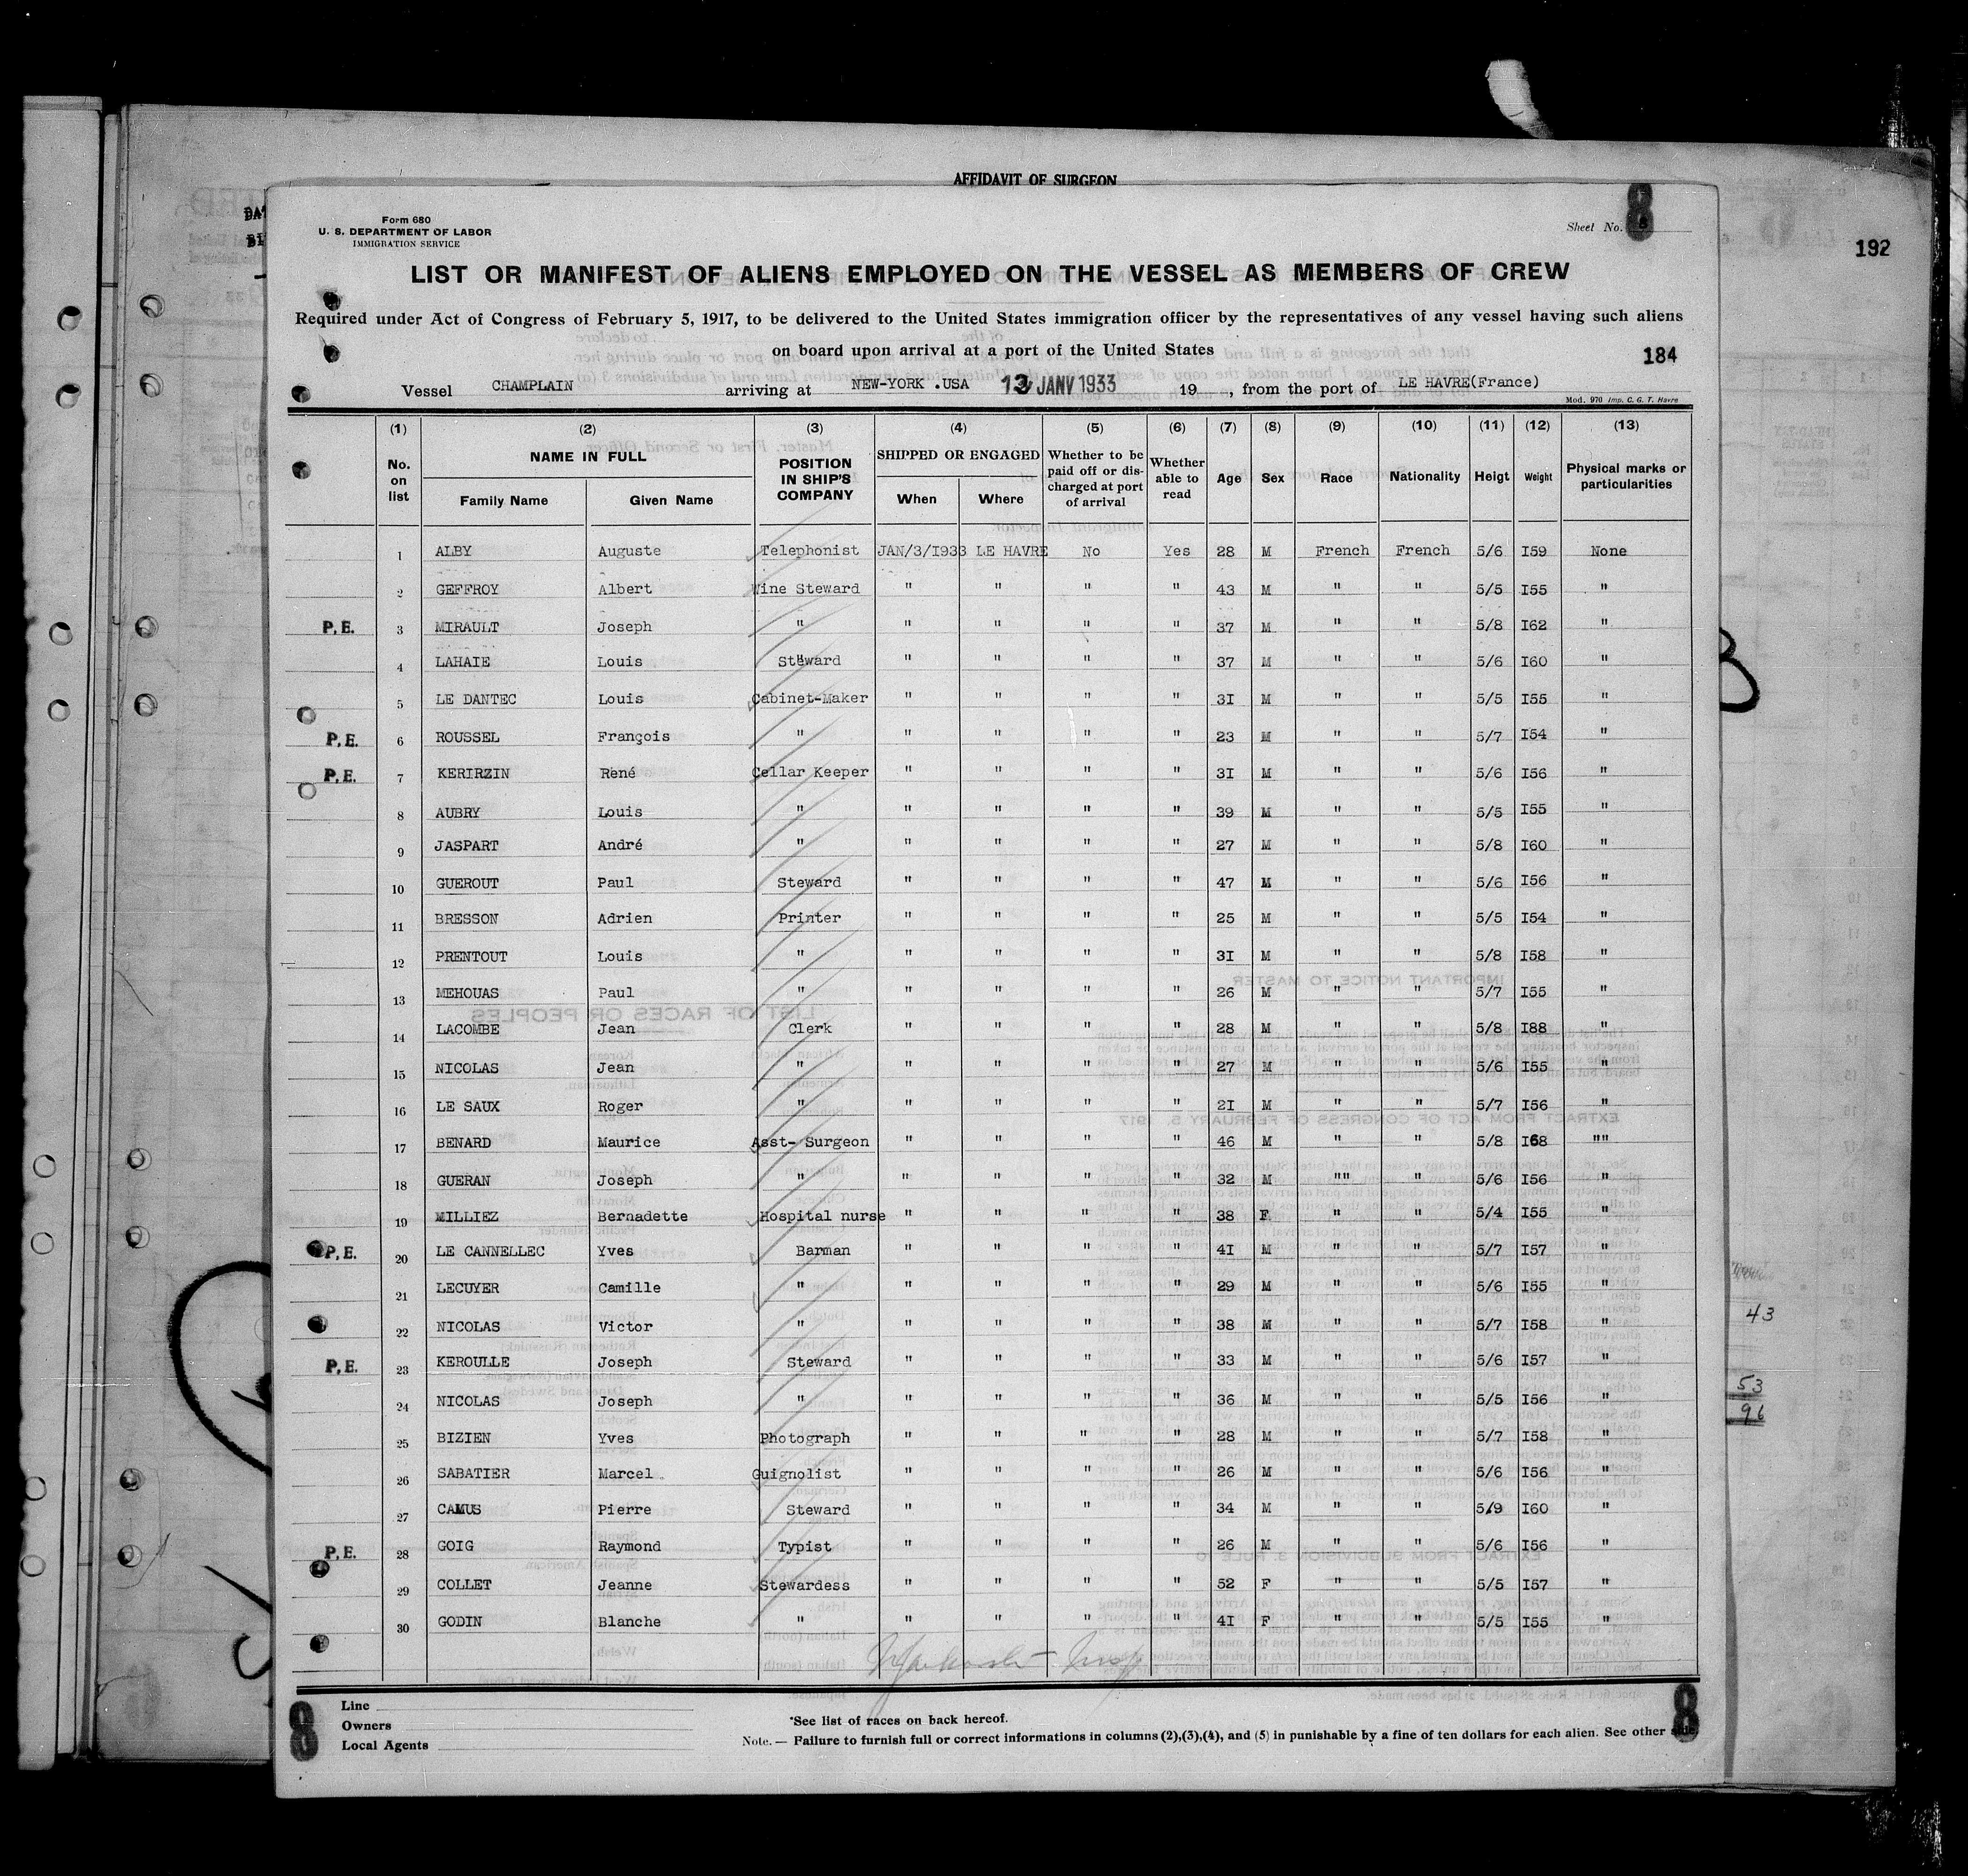 AFFIDAVIT OF SURGEON
8
Form 680
U. S. DEPARTMENT OF LABOR
IMMIGRATION SERVICE
Sheet No.
192
LIST OR MANIFEST OF ALIENS EMPLOYED ON THE VESSEL AS MEMBERS OF CREW
Required under Act of Congress of February 5, 1917, to be delivered to the United States immigration officer by the representatives of any vessel having such aliens
on board upon arrival at a port of the United States
184
Vessel CHAMPLAIN arriving at NEW-YORK .USA 13 JANV 1933 19 , from the port of LE HAVRE(France)
Mod. 970 Imp. C. G. T. Havre
(1) (2) (3) (4) (5) (6) (7) (8) (9) (10) (11) (12) (13)
No. on list NAME IN FULL Family Name Given Name POSITION IN SHIP'S COMPANY SHIPPED OR ENGAGED When Where Whether to be paid off or dis-charged at port of arrival Whether able to read Age Sex Race Nationality Heigt Weight Physical marks or particularities
1 ALBY Auguste Telephonist JAN/3/I933 LE HAVRE No Yes 28 M French French 5/6 I59 None
2 GEFFROY Albert Wine Steward " " " " 43 M " " 5/5 I55 "
P.E. 3 MIRAULT Joseph " " " " " 37 M " " 5/8 I62 "
4 LAHAIE Louis Steward " " " " 37 M " " 5/6 I60 "
5 LE DANTEC Louis Cabinet-Maker " " " " 3I M " " 5/5 I55 "
P.E. 6 ROUSSEL François " " " " " 23 M " " 5/7 I54 "
P.E. 7 KERIRZIN René Cellar Keeper " " " " 3I M " " 5/6 I56 "
8 AUBRY Louis " " " " " 39 M " " 5/5 I55 "
9 JASPART André " " " " " 27 M " " 5/8 I60 "
10 GUEROUT Paul Steward " " " " 47 M " " 5/6 I56 "
11 BRESSON Adrien Printer " " " " 25 M " " 5/5 I54 "
12 PRENTOUT Louis " " " " " 3I M " " 5/8 I58 "
13 MEHOUAS Paul " " " " " 26 M " " 5/7 I55 "
14 LACOMBE Jean Clerk " " " " 28 M " " 5/8 I88 "
15 NICOLAS Jean " " " " " 27 M " " 5/6 I55 "
16 LE SAUX Roger " " " " " 2I M " " 5/7 I56 "
17 BENARD Maurice Asst- Surgeon " " " " 46 M " " 5/8 I68 ""
18 GUERAN Joseph " " " " " 32 M "" " 5/6 I56 "
19 MILLIEZ Bernadette Hospital nurse " " " " 38 F " " 5/4 I55 "
P.E. 20 LE CANNELLEC Yves Barman " " " " 4I M " " 5/7 I57 "
21 LECUYER Camille " " " " " 29 M " " 5/6 I55 "
22 NICOLAS Victor " " " " " 38 M " " 5/7 I58 "
P.E. 23 KEROULLE Joseph Steward " " " " 33 M " " 5/6 I57 "
24 NICOLAS Joseph " " " " " 36 M " " 5/5 I56 "
25 BIZIEN Yves Photograph " " " " 28 M " " 5/7 I58 "
26 SABATIER Marcel Guignolist " " " " 26 M " " 5/6 I56 "
27 CAMUS Pierre Steward " " " " 34 M " " 5/9 I60 "
P.E. 28 GOIG Raymond Typist " " " " 26 M " " 5/6 I56 "
29 COLLET Jeanne Stewardess " " " " 52 F " " 5/5 I57 "
30 GODIN Blanche " " " " " 4I F " " 5/5 I55 "
43
53
96
8
Line
Owners
Local Agents
*See list of races on back hereof.
Note. — Failure to furnish full or correct informations in columns (2),(3),(4), and (5) in punishable by a fine of ten dollars for each alien. See other side.
8